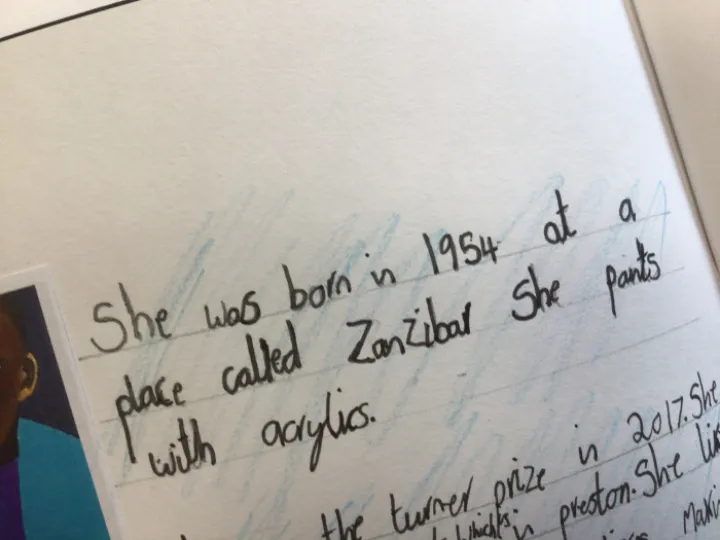 She was born in 1954 at a
place called Zanzibar She paints
with acrylics.
the turner prize in 2017. She
which is in preston. She